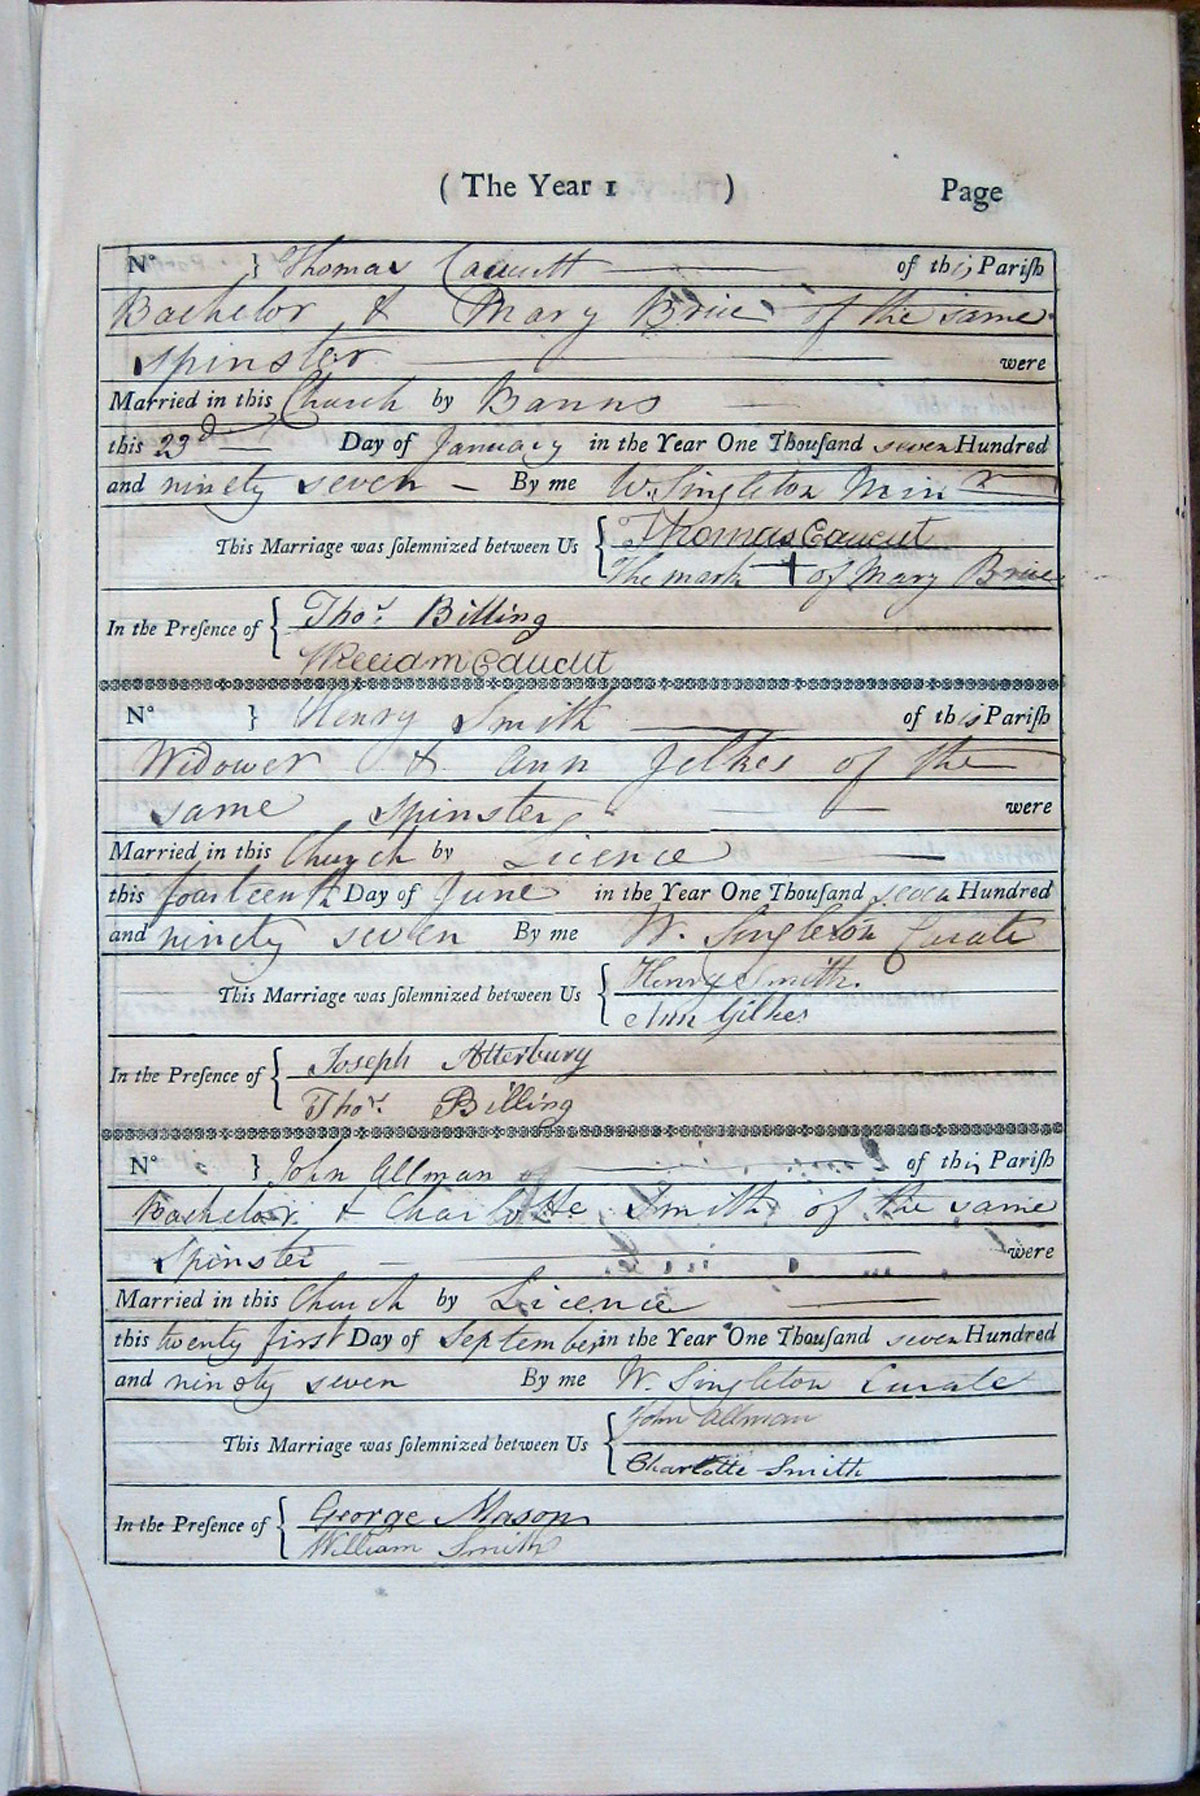 ( The Year 1 ) Page
No } Thomas Caucutt of this Parish
Bachelor & Mary Brice of the same
Spinster were
Married in this Church by Banns
this 23d Day of January in the Year One Thousand seven Hundred
and ninety seven By me W. Singleton Minr
This Marriage was solemnized between Us { Thomas Caucut
The mark + of Mary Brice
In the Presence of { Thos. Billing
William Caucut
No } Henry Smith of this Parish
Widower & Ann Jelkes of the
same Spinster were
Married in this Church by Licence
this fourteenth Day of June in the Year One Thousand seven Hundred
and ninety seven By me W. Singleton Curate
This Marriage was solemnized between Us { Henry Smith.
Ann Gilkes
In the Presence of { Joseph Atterbury
Thos. Billing
No } John Allman of this Parish
Bachelor & Charlotte Smith of the same
Spinster were
Married in this Church by Licence
this twenty first Day of September in the Year One Thousand seven Hundred
and ninety seven By me W. Singleton Curate
This Marriage was solemnized between Us { John Allman
Charlotte Smith
In the Presence of { George Mason
William Smith